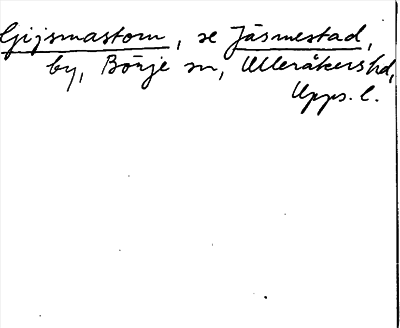 Gijsmastom, se Jäsmestad,
by, Börje sn, Ulleråkers hd,
Upps. l.